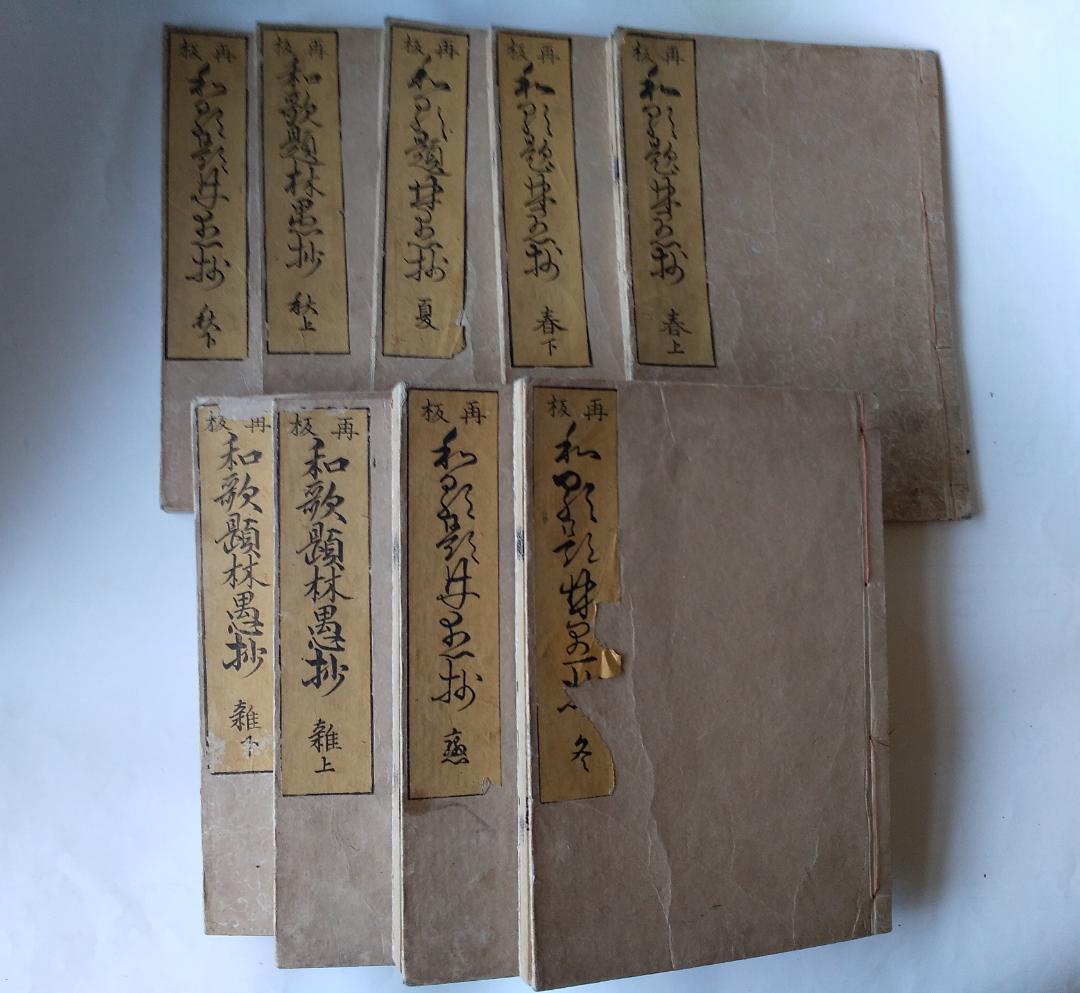 再板
和歌題林愚抄
春上
再板
和歌題林愚抄
春下
再板
和歌題林愚抄
夏
再板
和歌題林愚抄
秋上
再板
和歌題林愚抄
秋下
再板
和歌題林愚
冬
再板
和歌題林愚抄
戀
再板
和歌題林愚抄
雜上
再板
和歌題林愚抄
雜下